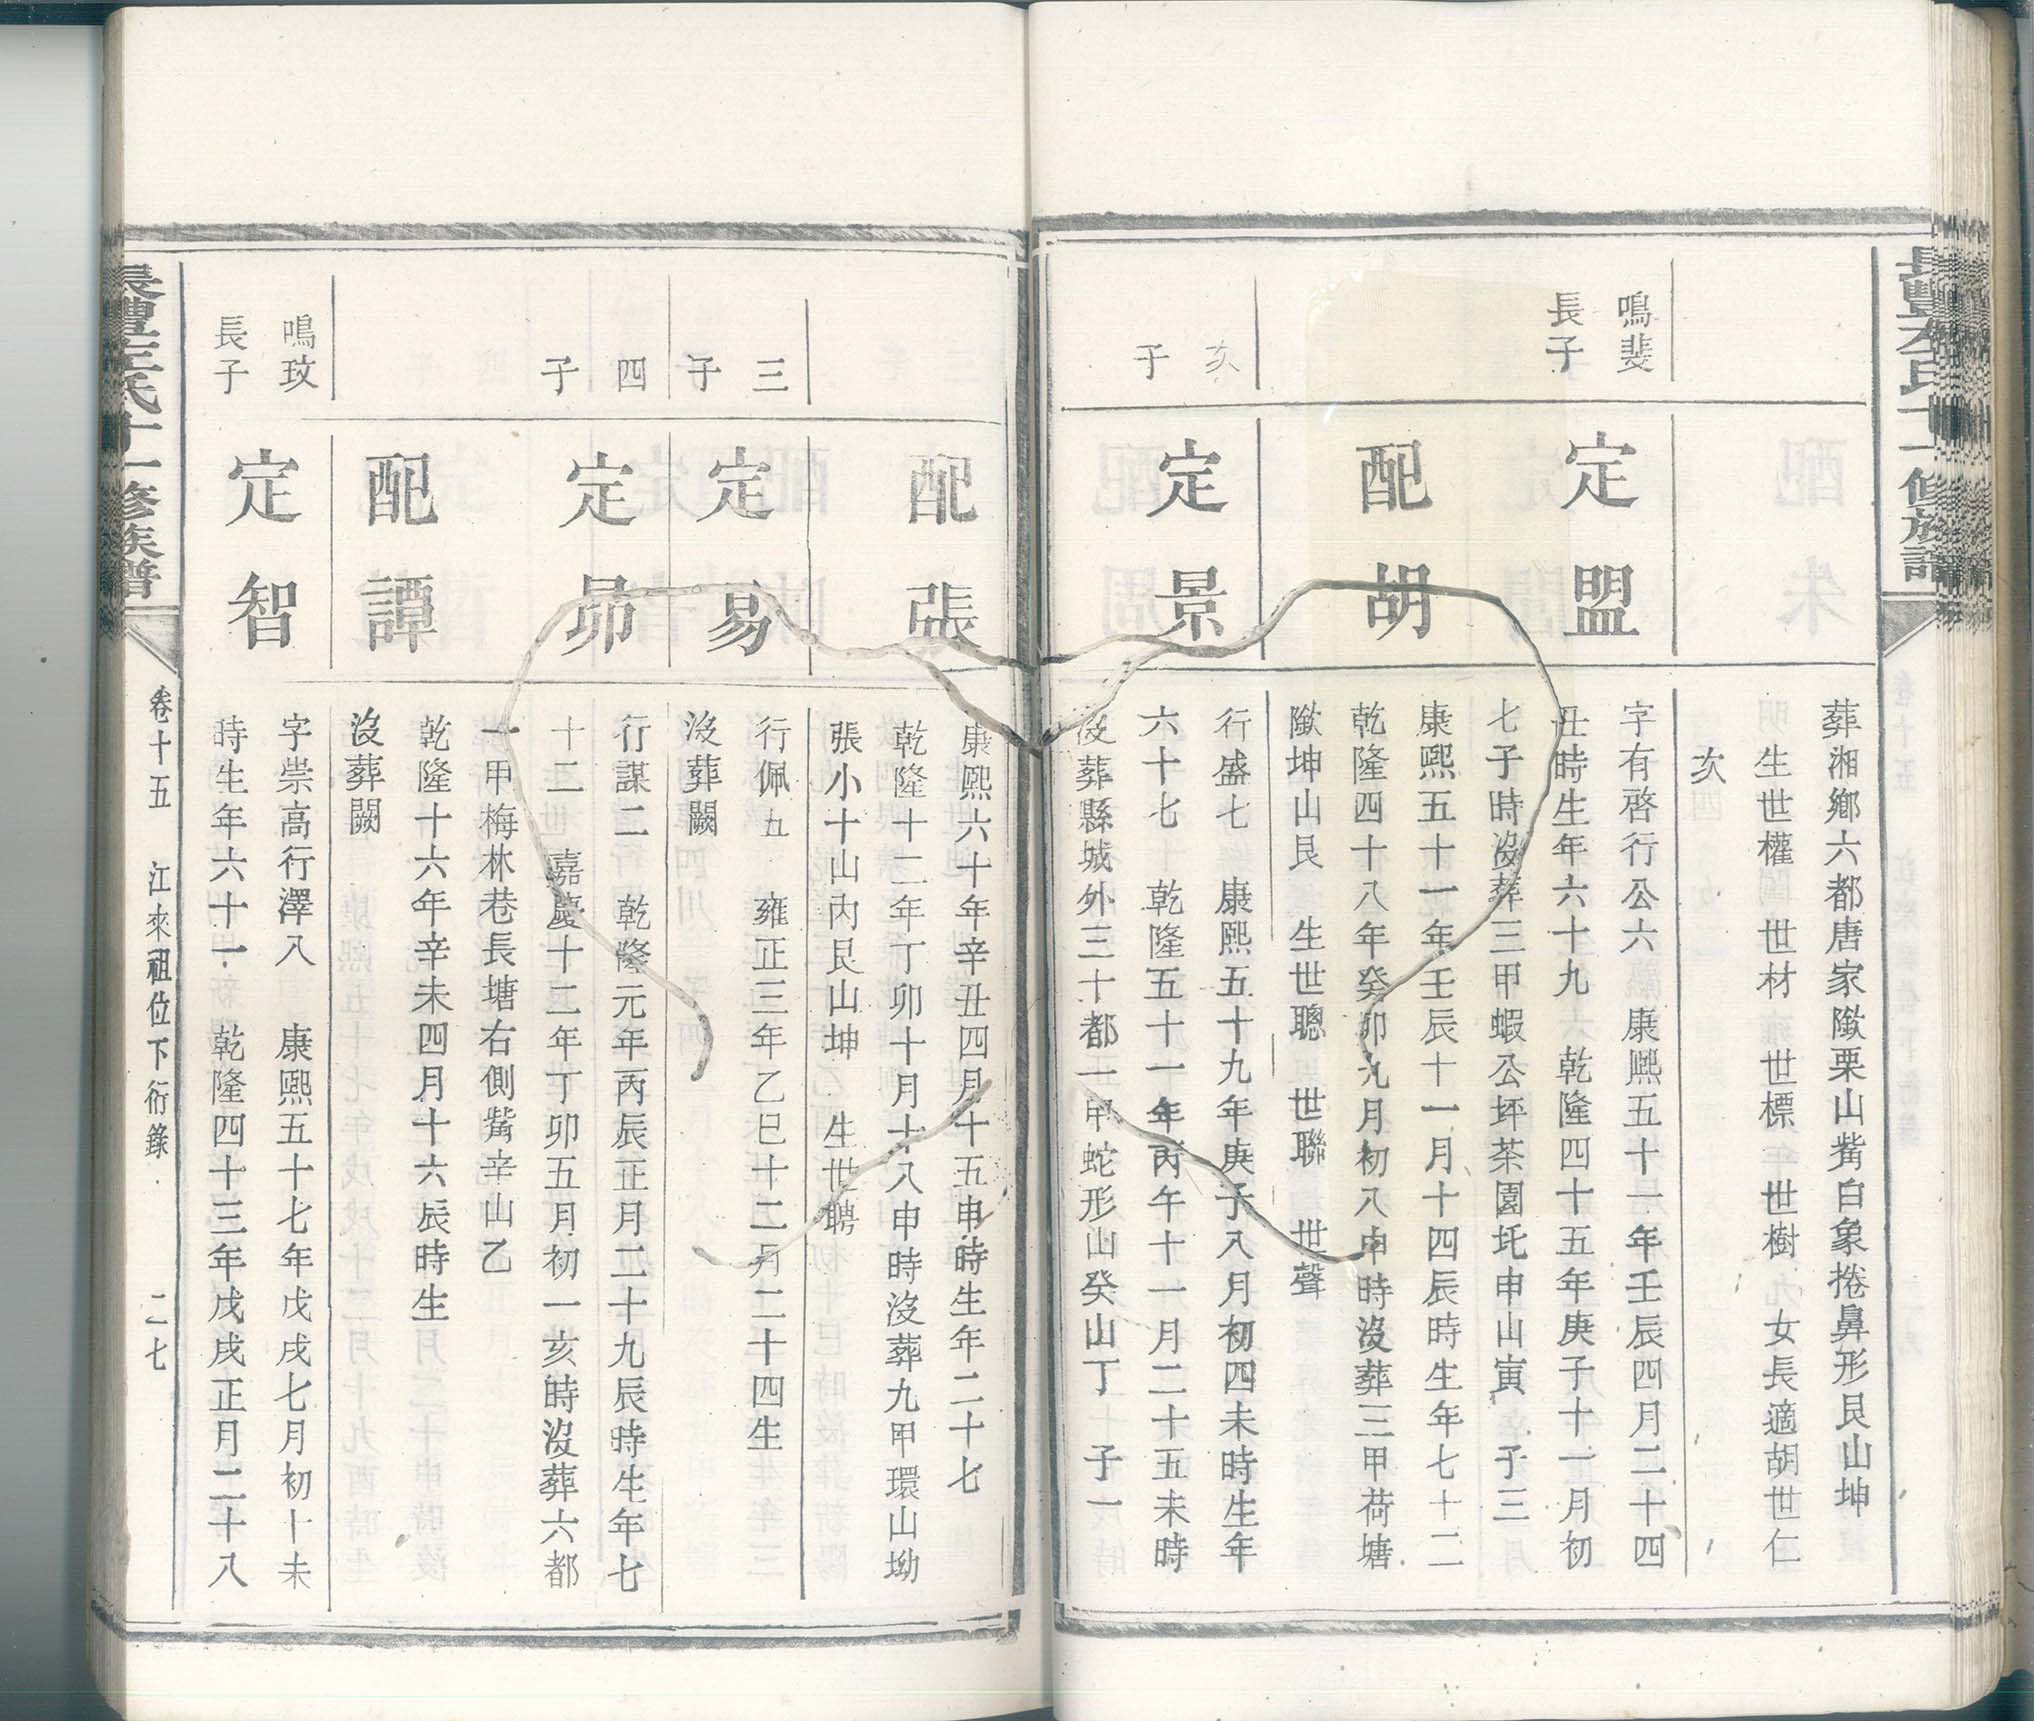 配朱
葬湘鄉六都唐家㘓栗山觜白象捲鼻形艮山坤
生世權 世材 世標 世樹 女長適胡世仁
次
鳴斐
長子
定盟
字有啓行公六 康熙五十一年壬辰四月二十四
丑時生年六十九 乾隆四十五年庚子十一月初
七子時沒葬三甲蝦公坪茶園圫申山寅 子三
配胡
康熙五十一年壬辰十一月十四辰時生年七十二
乾隆四十八年癸卯九月初八申時沒葬三甲荷塘
㘓坤山艮 生世聰 世聯 世聲
次
子
定景
行盛七 康熙五十九年庚子八月初四未時生年
六十七 乾隆五十一年丙午十一月二十五未時
沒葬縣城外三十都一甲蛇形山癸山丁 子一
配張
康熙六十年辛丑四月十五申時生年二十七
乾隆十二年丁卯十月十八申時沒葬九甲環山坳
張小十山內艮山坤 生世聘
三
子
定易
行佩五 雍正三年乙巳十二月二十四生
沒葬闕
四
子
定昴
行謀二 乾隆元年丙辰正月二十九辰時生年七
十二 嘉慶十二年丁卯五月初一亥時沒葬六都
一甲梅林巷長塘右側觜辛山乙
配譚
乾隆十六年辛未四月十六辰時生
沒葬闕
鳴玟
長子
定智
字崇高行澤八 康熙五十七年戊戌七月初十未
時生年六十一 乾隆四十三年戊戌正月二十八
氏十一修族譜
卷十五 江來祖位下衍錄 二七